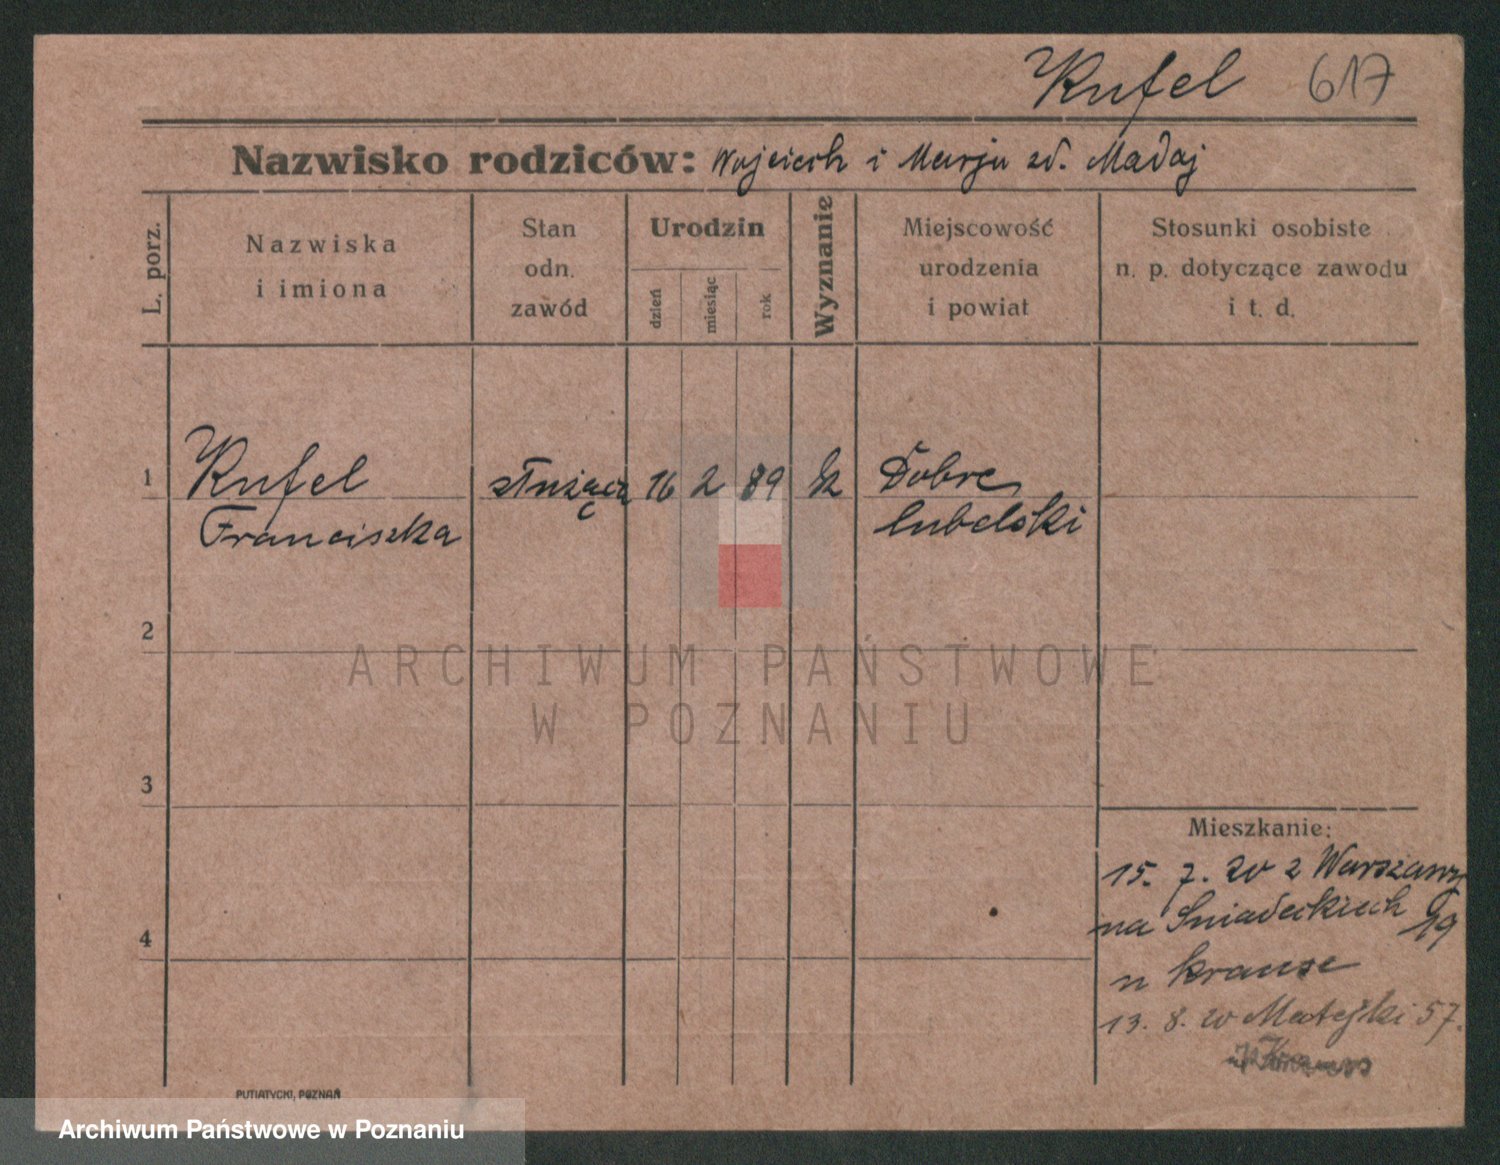 Kufel 617
Nazwisko rodziców: Wojciech i Marja zd. Madaj
L. porz.
Nazwiska
i imiona
Stan
odn.
zawód
Urodzin
dzień
miesiąc
rok
Wyznanie
Miejscowość
urodzenia
i powiat
Stosunki osobiste
n. p. dotyczące zawodu
i t. d.
1 Kufel służąca 16 2 89 k Dobre
Franciszka lubelski
2
ARCHIWUM PAŃSTWOWE
W POZNANIU
3
Mieszkanie:
15. 7. 20 z Warszawy
na Sniadeckich 19
4
u Krause
13. 8. 20 Matejki 57.
PUTIATYCKI, POZNAŃ
Archiwum Państwowe w Poznaniu